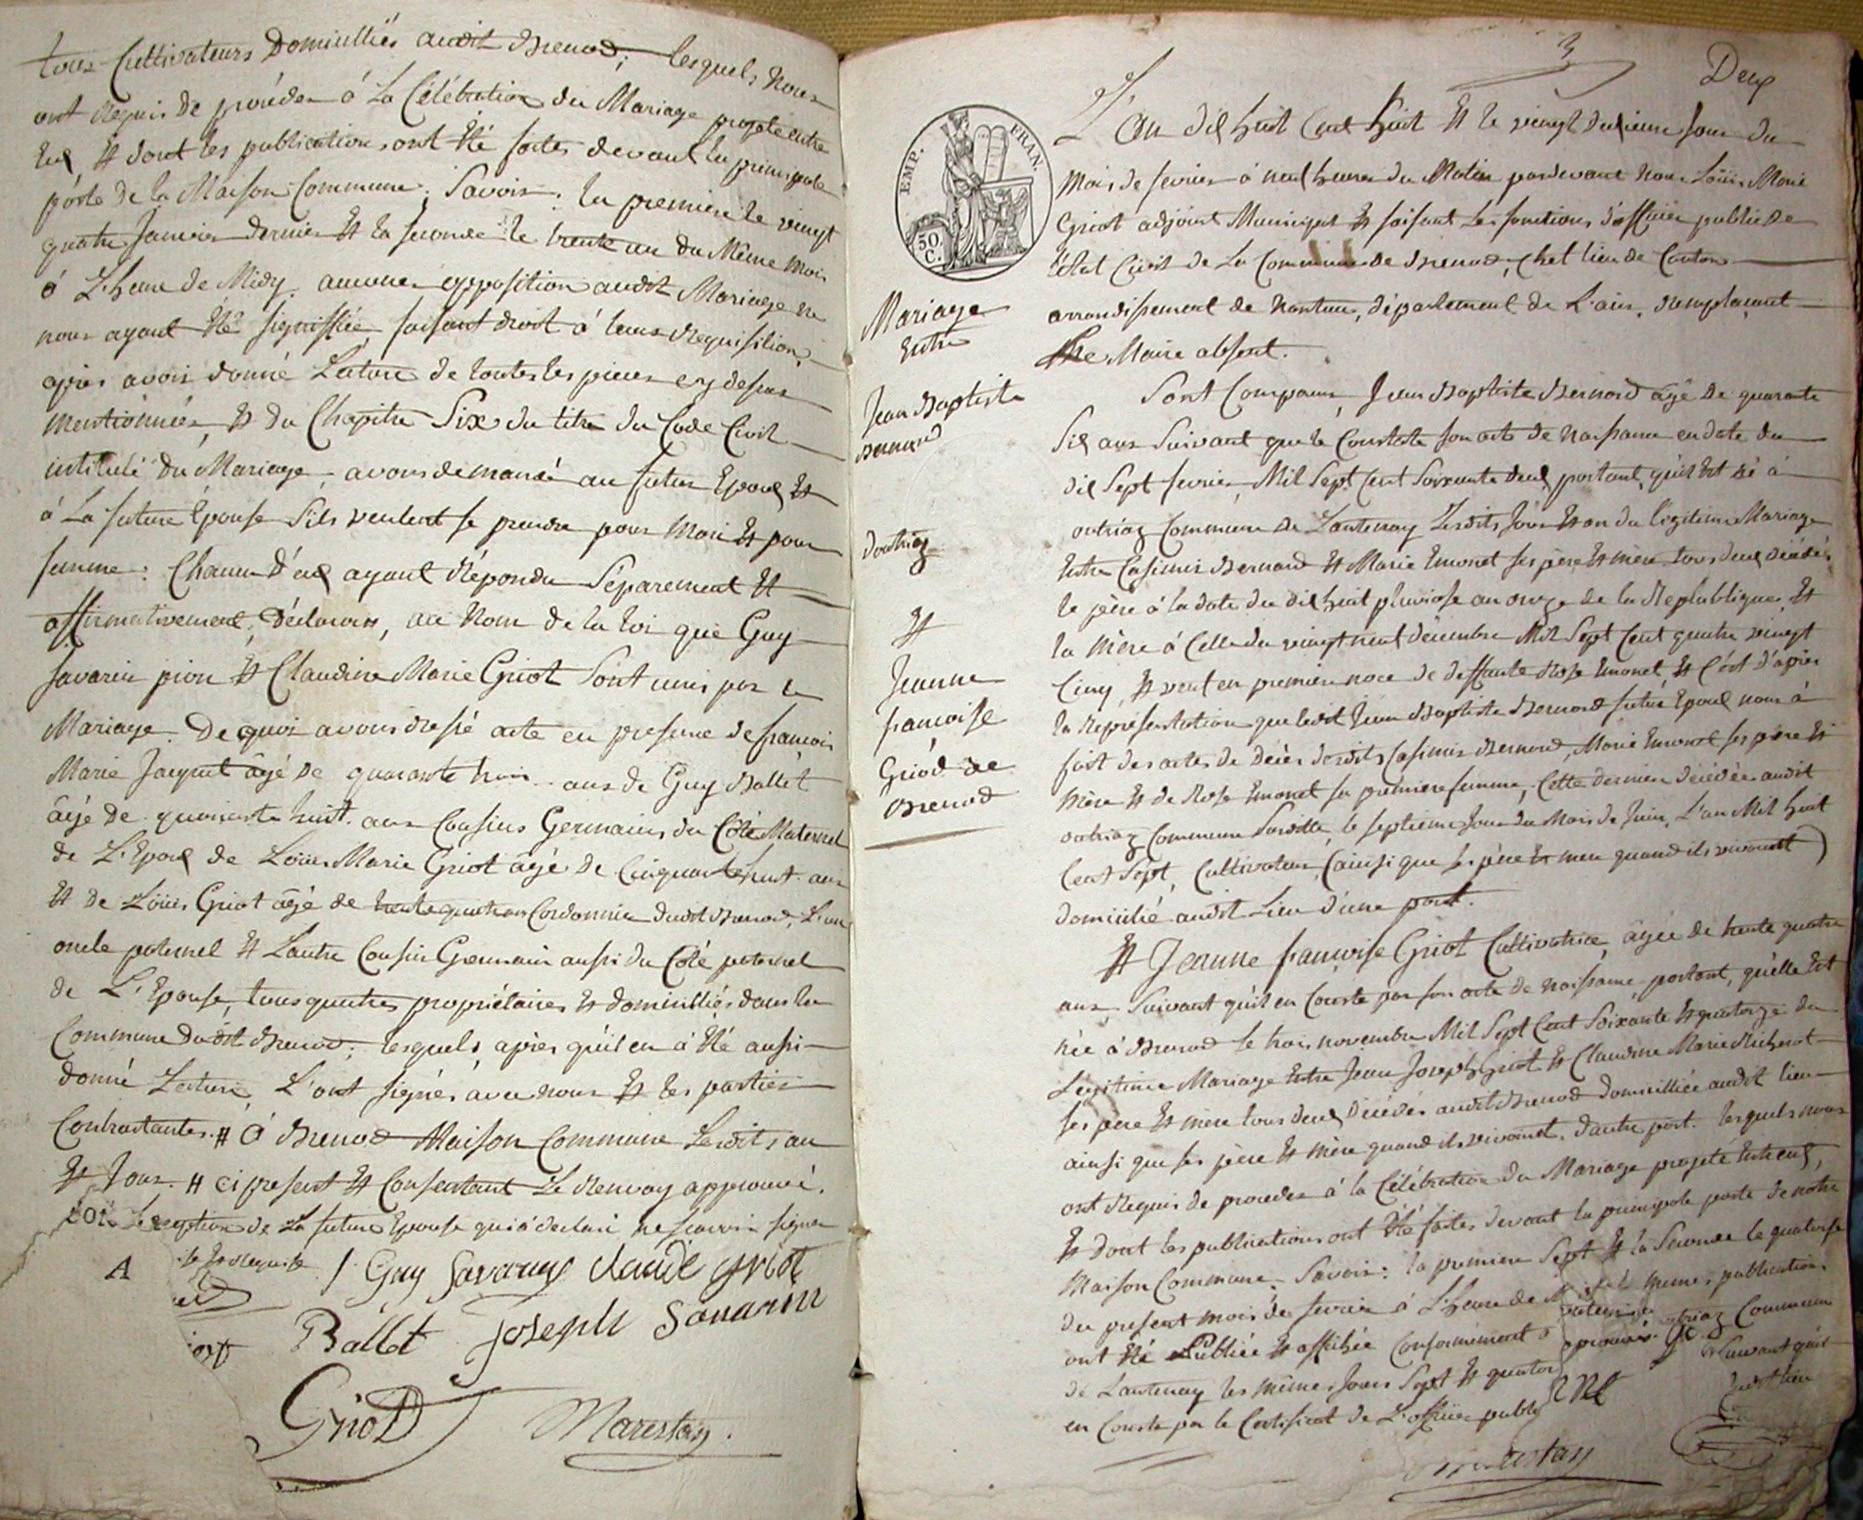 tous Cultivateurs Domicilliés audit Brenod; lesquels nous
ont Requis de procéder à La Célébration du Mariage projeté entre
Eux Et dont les publications ont Eté faites devant la principale
porte de la Maison Commune; Savoir: la premiere le vingt
quatre Janvier dernier Et la seconde le trente un du Même Mois
à L'heure de Midy. aucune opposition audit Mariage ne
nous ayant Eté signiffiée, faisant droit à leur Requisition,
après avoir donné Lecture de toutes les pieces cy dessus
mentionnées, Et du Chapitre Six du titre du Code Civil
intitulé du Mariage, avons demandé au futur Epoux Et
à La future Epouse S'ils veulent se prendre pour Mari Et pour
femme: Chacun d'eux ayant Répondu Séparement Et
affirmativement, Déclarons, au Nom de la loi que Guy
Savarin pion Et Claudine Marie Griot Sont unis par le
Mariage. De quoi avons dressé acte en presence de françois
Marie Jacquet âgé de quarante trois ans de Guy Ballet
âgé de quarante huit ans Cousins Germains du Côté Maternel
de L'Epoux de Louis Marie Griot âgé de Cinquante huit ans
Et de Loüis Griot âgé de trente quatre ans Cordonnier dudit Brenod, L'un
oncle paternel Et Lautre Cousin Germain aussi du Côté paternel
de L'Epouse, tous quatre propriétaires Et domicilliés dans la
Commune dudit Brenod; lesquels, après qu'il en à Eté aussi
donné Lecture, L'ont signés avec nous Et les parties
Contractantes. # à Brenod Maison Commune Lesdits an
Et Jour. # ci present Et Consentant Le Renvoy approuvé.
à L'exception de La future Epouse qui à déclaré ne scavoir signer
de ce Requise / Guy Savarin Claude Griot
A
Ballet Joseph Savarin
Griod Marestan.
3 Deux
EMP. FRAN.
50 C.
L'an dix huit Cent huit Et le vingt deuxieme Jour du
Mois de fevrier à neuf heures du Matin pardevant Nous Loüis Marie
Griot adjoint Municipal Et faisant les fonctions d'officier public de
l'Etat Civil de La Commune de Brenod, Chef lieu de Canton
arrondissement de Nantua, département de L'ain, Remplaçant
Le Maire absent.
Mariage
Entre
Jean Baptiste
Bernard
d'outriaz
Et
Jeanne
francoise
Griod de
Brenod
Sont Comparus, Jean Baptiste Bernard âgé de quarante
Six ans Suivant que le Constate son acte de naissance en date du
dix Sept fevrier, Mil Sept Cent Soixante deux, portant qu'il Est né à
outriaz Commune de Lantenay Lesdits Jour Et an du légitime Mariage
Entre Casimir Bernard Et Marie Emonet ses père Et mère tous deux décédés
le père à la date du dix huit pluviose an onze de la Republique, Et
la Mère à Celle du vingt neuf décembre Mil Sept Cent quatre vingt
Cinq, Et veuf en premiere noce de deffunte Rose Emonet Et C'est d'après
la Représentation que ledit Jean Baptiste Bernard futur Epoux nous à
fait des actes de décès desdits Casimir Bernard, Marie Emonet ses père Et
Mère Et de Rose Emonet sa premiere femme, Cette derniere décédée audit
outriaz Commune Susditte, le septieme Jour du Mois de Juin, L'an Mil huit
Cent Sept, Cultivateur, (ainsi que ses père Et mere quand ils vivoient)
domicilié audit Lieu d'une part.
Et Jeanne françoise Griot Cultivatrice, âgée de trente quatre
ans, Suivant qu'il en Conste par son acte de naissance portant, qu'elle Est
née à Brenod le trois novembre Mil Sept Cent Soixante Et quatorze du
Légitime Mariage Entre Jean Joseph Griot Et Claudine Marie Michenot
ses père Et mère tous deux Décédés audit Brenod domicilliée audit lieu
ainsi que ses père Et mère quand ils vivoient. d'autre part. lesquels nous
ont Requis de proceder à la Célébration du Mariage projeté Entr'eux,
Et dont les publications ont Eté faites devant la principale porte de notre
Maison Commune. Savoir: la premiere Sept Et la Seconde le quatorze
du present mois de fevrier à L'heure de Mémes publications
ont Eté Publiée Et affichée Conformement Commune
de Lantenay les mêmes Jours Sept Et quator Suivant qu'il
en Conste par le Certificat de L'officier public dudit lieu